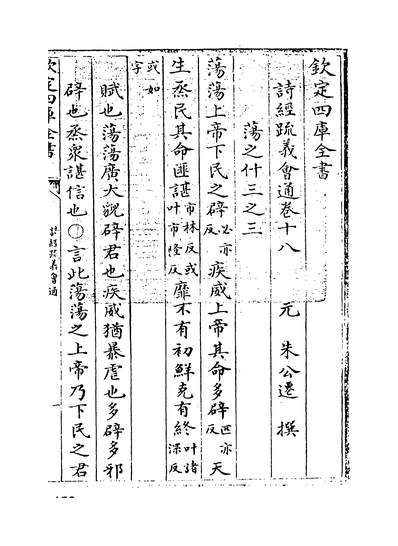 欽定四庫全書
詩經疏義會通卷十八
元 朱公遷 撰
蕩之什三之三
蕩蕩上帝下民之辟必亦反疾威上帝其命多辟匹亦反天
生烝民其命匪諶市林反或叶市隆反靡不有初鮮克有終叶諸深反
或如字
賦也蕩蕩廣大貌辟君也疾威猶暴虐也多辟多邪
辟也烝衆諶信也○言此蕩蕩之上帝乃下民之君
欽定四庫全書
詩經疏義會通
一